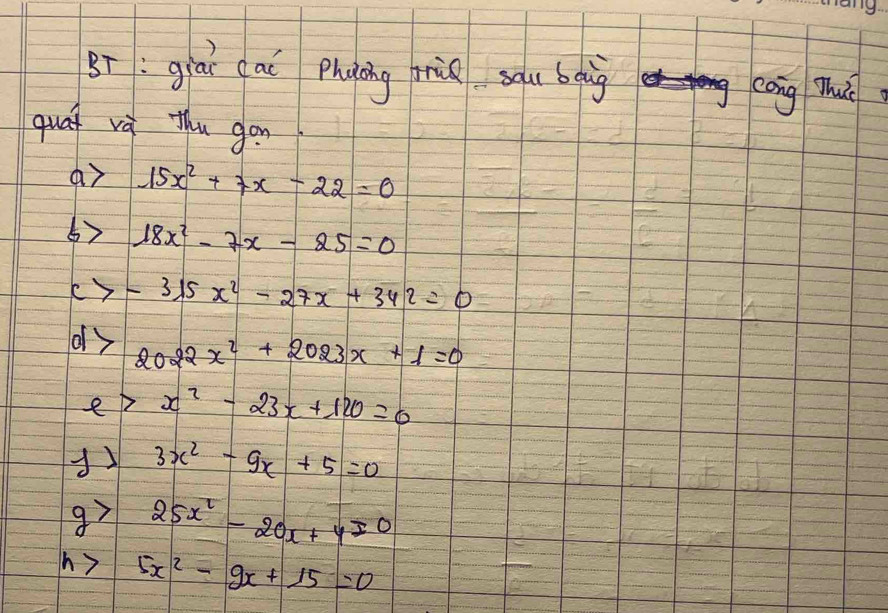 BT : giải các phương trình sau bằng công thức
quát và thu gọn.
a> 15x² + 7x - 22 = 0
b> 18x² - 7x - 25 = 0
c> - 315x² - 27x + 342 = 0
d> 2022x² + 2023x + 1 = 0
e> x² - 23x + 120 = 0
f> 3x² - 9x + 5 = 0
g> 25x² - 20x + 4 = 0
h> 5x² - 9x + 15 = 0